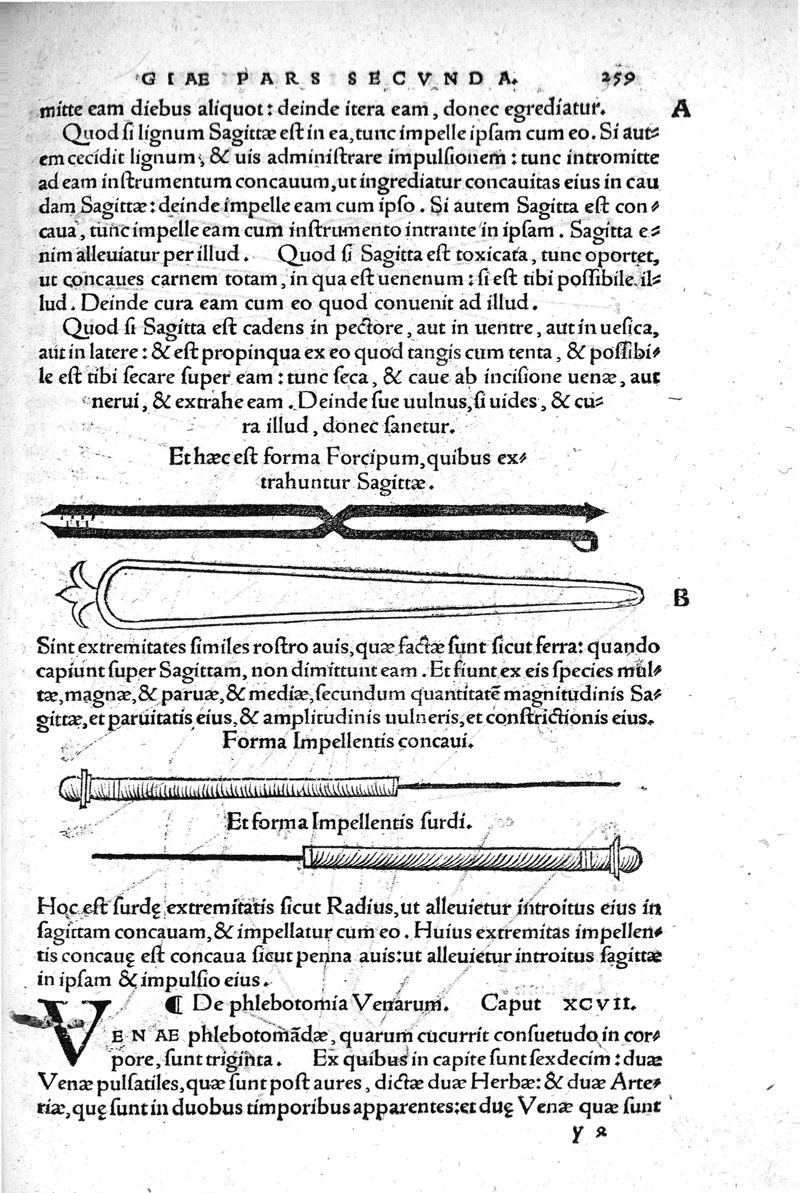 GIAE PARS SECVNDA. 259
mitte eam diebus aliquot: deinde itera eam, donec egrediatur. A
Quod ſi lignum Sagittæ eſt in ea, tunc impelle ipſam cum eo. Si aut⸗
em cecidit lignum, & uis adminiſtrare impulſionem: tunc intromitte
ad eam inſtrumentum concauum, ut ingrediatur concauitas eius in cau
dam Sagittæ: deinde impelle eam cum ipſo. Si autem Sagitta eſt con⸗
caua, tunc impelle eam cum inſtrumento intrante in ipſam. Sagitta e⸗
nim alleuiatur per illud. Quod ſi Sagitta eſt toxicata, tunc oportet,
ut concaues carnem totam, in qua eſt uenenum: ſi eſt tibi poſſibile il⸗
lud. Deinde cura eam cum eo quod conuenit ad illud.
Quod ſi Sagitta eſt cadens in pectore, aut in uentre, aut in ueſica,
aut in latere: & eſt propinqua ex eo quod tangis cum tenta, & poſſibi⸗
le eſt tibi ſecare ſuper eam: tunc ſeca, & caue ab inciſione uenæ, aut
nerui, & extrahe eam. Deinde ſue uulnus, ſi uides, & cu⸗
ra illud, donec ſanetur.
Et hæc eſt forma Forcipum, quibus ex⸗
trahuntur Sagittæ.
B
Sint extremitates ſimiles roſtro auis, quæ factæ ſunt ſicut ferra: quando
capiunt ſuper Sagittam, non dimittunt eam. Et fiunt ex eis ſpecies mul⸗
tæ, magnæ, & paruæ, & mediæ, ſecundum quantitatē magnitudinis Sa⸗
gittæ, et paruitatis eius, & amplitudinis uulneris, et conſtrictionis eius.
Forma Impellentis concaui.
Et forma Impellentis ſurdi.
Hoc eſt ſurdę extremitatis ſicut Radius, ut alleuietur introitus eius in
ſagittam concauam, & impellatur cum eo. Huius extremitas impellen⸗
tis concauę eſt concaua ſicut penna auis: ut alleuietur introitus ſagittæ
in ipſam & impulſio eius.
¶ De phlebotomia Venarum. Caput XCVII.
VENAE phlebotomādæ, quarum cucurrit conſuetudo in cor⸗
pore, ſunt triginta. Ex quibus in capite ſunt ſexdecim: duæ
Venæ pulſatiles, quæ ſunt poſt aures, dictæ duæ Herbæ: & duæ Arte⸗
riæ, quę ſunt in duobus timporibus apparentes: et duę Venæ quæ ſunt
y 2